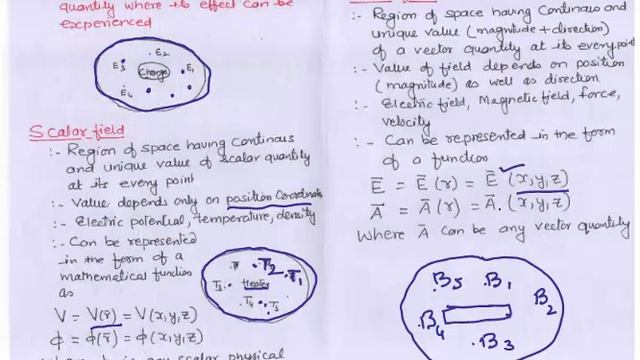 quantity where its effect can be
experienced
E2
E3
E1
Charge
E4
Scalar field
:- Region of space having Continous
and unique value of scalar quantity
at its every point
:- Value depends only on position Coordinate
:- Electric potential, temperature, density
:- Can be represented
in the form of a
mathematical function
as
V = V(r̄) = V(x,y,z)
φ = φ(r̄) = φ(x,y,z)
T2
T1
T3
Heater
T4
T5
is any scalar physical
:- Region of space having Continous and
unique value (magnitude + direction)
of a vector quantity at its every point
:- Value of field depends on position
(magnitude) as well as direction.
:- Electric field, Magnetic field, force,
velocity
:- Can be represented in the form
of a function
E̅ = E̅(r) = E̅ (x,y,z)
A̅ = A̅(r) = A̅. (x,y,z)
Where A̅ can be any vector quantity
B5
B1
B2
B4
B3